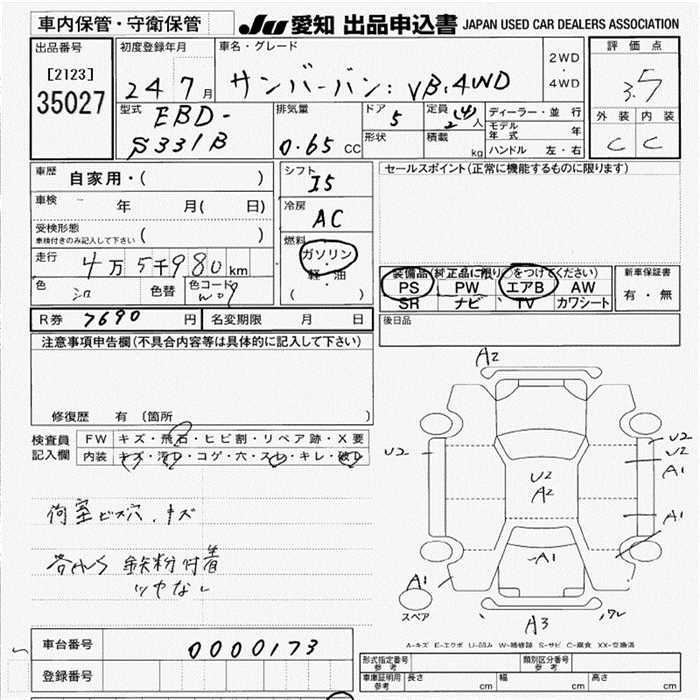 車内保管・守衛保管 JU 愛知 出品申込書 JAPAN USED CAR DEALERS ASSOCIATION
出品番号 [2123] 35027
初度登録年月 24 7月
車名・グレード サンバーバン: VB.4WD
2WD・4WD
評価点 3.5
型式 EBD-S331B
排気量 0.65 CC
ドア 5
定員 2(4)人
形状
積載 kg
ディーラー・並行
モデル年式 年
ハンドル 左・右
外装 C
内装 C
車歴 自家用・( )
車検 年 月( 日)
受検形態 車検付きのみ記入して下さい ( )
走行 4万5千980km
色 シロ 色替 色コード W09
シフト I5
冷房 AC
燃料 ガソリン・軽油 ( )
セールスポイント (正常に機能するものに限ります)
装備品(純正品に限り○をつけてください)
PS PW エアB AW
SR ナビ TV カワシート
新車保証書 有・無
R券 7690円 名変期限 月 日
後日品
注意事項申告欄(不具合内容等は具体的に記入して下さい)
修復歴 有 〔箇所 〕
検査員記入欄
FW キズ・飛石・ヒビ割・リペア跡・X要
内装 キズ・汚レ・コゲ・穴・スレ・キレ・破レ
荷室ビス穴.キズ
鉄粉付着
ツヤなし
A2
U2
U2
A1
U2
A2
A1
A1
A1
スペア
A3
A-キズ E-エクボ U-凹み W-補修跡 S-サビ C-腐食 XX-交換済
車台番号 0000173
登録番号
形式指定番号 参考
類別区分番号 参考
車庫証明用 参考 長さ cm 幅 cm 高さ cm